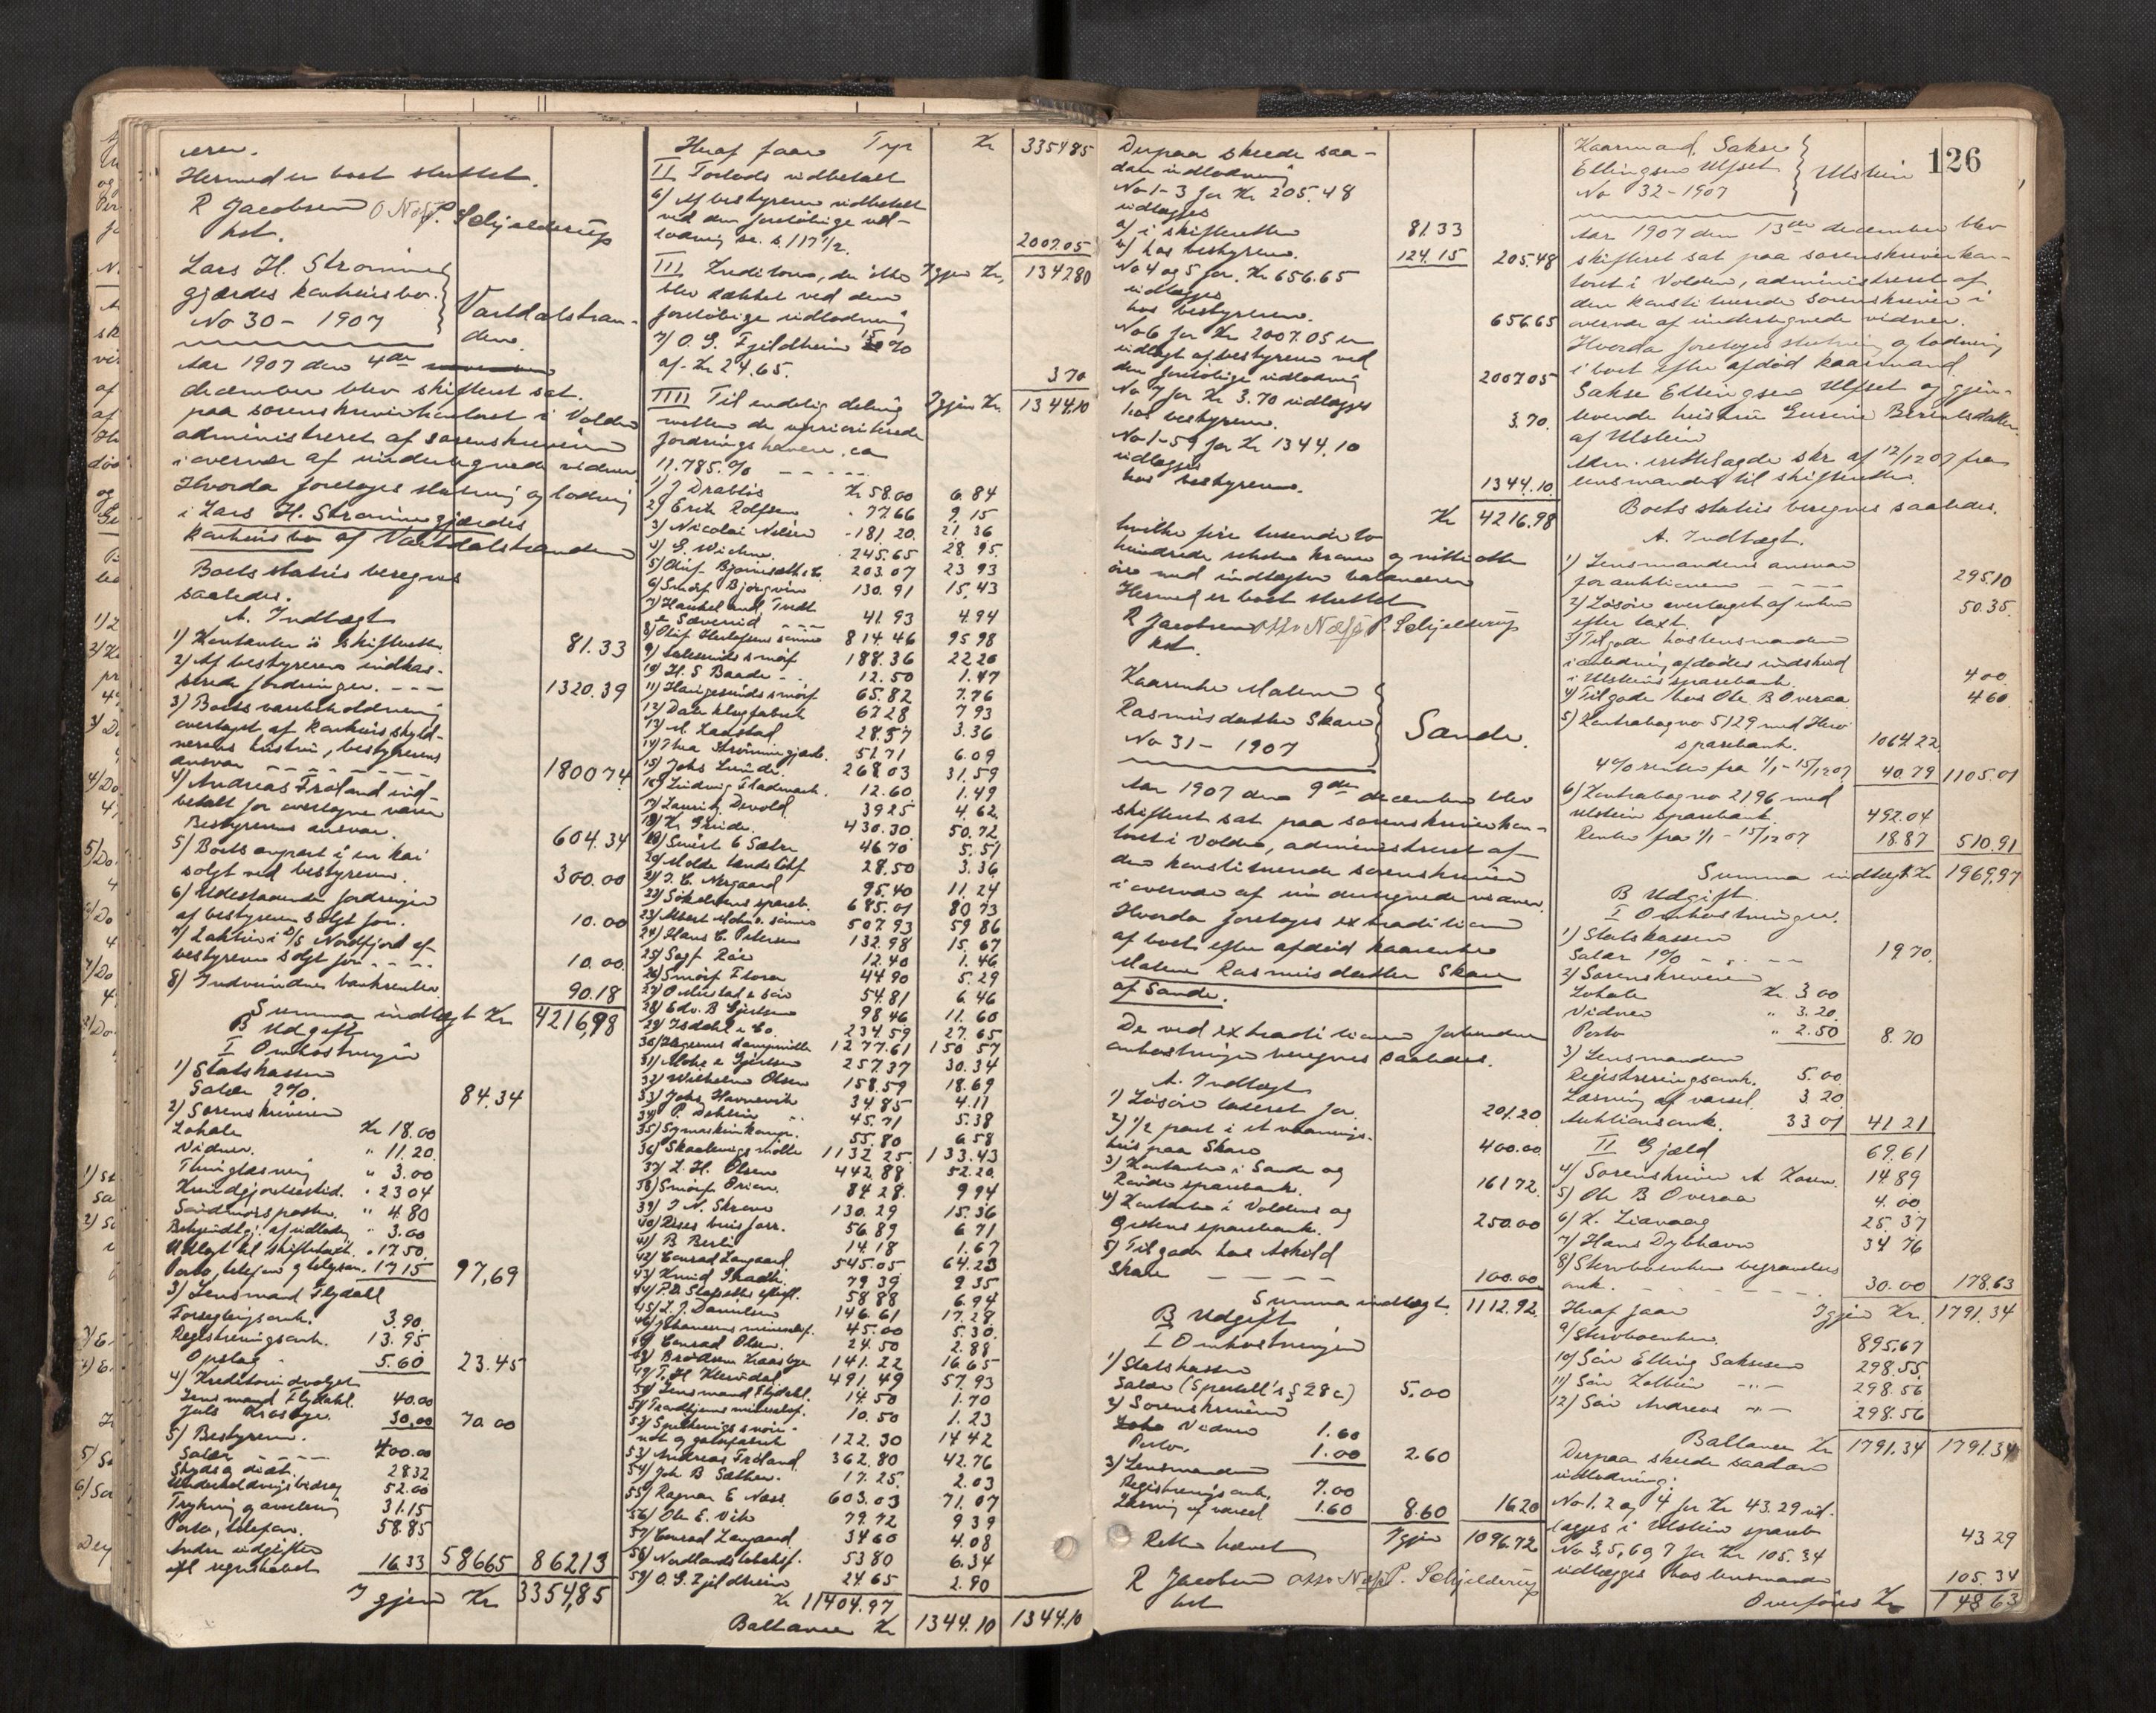 Hermed er boet sluttet.
R Jacobsen O Næss P. Schjelderup
kst.
Lars H. Strømme
gjærdes konkursbo.
No 30 - 1907
Vartdalstran-
den.
Aar 1907 den 4de
december blev skifteret sat
paa sorenskriverkontoret i Volden
administreret af sorenskriveren
i overvær af undertegnede vidner
Hvorda foretoges slutning og lodning
i Lars H. Strømmegjærdes
konkursbo af Vartdalstranden
Boets status beregnes
saaledes.
A. Indtægt
1) Kontanter i skifteretten 81.33
2) Af bestyreren indkas-
serede fordringer. --- 1320.39
3) Boets varebeholdning
overtaget af konkursskyld-
nerens hustru, bestyrerens
ansvar 1800 74
4) Andreas Frøland ind-
betalt for overtagne varer
Bestyrerens ansvar. 604.34
5) Boets anpart i en kai
solgt ved bestyreren. 300.00
6) Udestaaende fordringer
af bestyreren solgt for. 10.00
7) 2 aktier i D/S Nordfjord af
bestyreren solgt for --- 10.00
8) Indvundne bankrenter 90.18
Summa indtægt Kr 4216,98
B Udgift
I Omkostninger
1) Statskassen
Salær 2%. 84.34
2) Sorenskriveren
Lokale Kr 18.00
Vidner. " 11.20
Thinglæsning " 3.00
Kundgjørelsestid. " 23 04
Søndmørsposten. " 4.80
Bekjendtgj. af indladn. " 3.00
Udlagt til skiftetaxt. " 17 50
Porto, telefon og telegram. 17 15 97,69
3) Lensmand Flydall
Forseglingsomk. 3.90
Registreringsomk. 13.95
Opslag 5.60 23.45
4) Kreditorudvalget
Lensmand Flydahl. 40.00
Juls Krosbye. 30,00 70 00
5) Bestyreren.
Salær --- 400.00
Skyds og diæt. 28 32
Underholdningsbidrag 52.00
Trykning og avertering 31.15
Porto, telefon. 58.85
Andre udgifter
efl regnskabet 16.33 586 65 862 13
Igjen Kr 3354,85
Heraf faaes Trpr Kr 3354 85
II Forlods udbetalt
6) Af bestyreren udbetalt
ved den foreløbige ud-
lodning se. s. 117 1/2. 2007.05
III Kreditorer, der ikke Igjen Kr. 1342 80
blev dækket ved den
foreløbige udlodning
7) O. G. Fjeldheim 15 %
af Kr 24.65. 3 70
IIII Til endelig deling Igjen Kr. 1344.10
mellem de uprioriterede
fordringshavere, ca
11.785.% ---
1) J Drabløs Kr 58.00 6.84
2) Erik Rolfsen " 77 66 9,15
3) Nicolai Nilsen " 181 20. 21 36
4) G. Wichm. " 245.65 28 95.
5) Oluf Bjørnseth &c. 203.07 23 93
6) Smørf Bjørgvin 130.91 15,43
7) Haukel and Tvedt
& Sævereid --- 41 93 4.94
8) Oluf Herlofsens sønner 814 46 95 98
9) Aalesunds smørf 188.36 22 20
10) H. S Baade - 12.50 1.47
11) Haugesunds smørf 65.82 7.76
12) Dale klæsfabrik 67 28 7 93
13) M. Ladstad 28.57 3.36
14) Thea Strømmegjærd. 51.71 6.09
15) Johs Lunde. 268 03 31.59
16) Ludvig Flademark. 12.60 1.49
17) Lauritz Devold. 39 25 4.62
18) Kr Grude. 430.30. 50.72
19) Sivert G Sæter 46 70 5.51
20) Molde Uandstikf 28.50 3.36
21) J. C. Nergaard 95.40 11 24
22) Søkelvens spareb. 685.01 80 73
23) Albert Mohn & sønner 507.93 59 86
24) Hans C. Petersen 132.98 15,67
25) Sagf Røe 12.40 1.46
26) Smørf Flora 44 90 5.29
27) O Mustad & søn 54.81 6.46
28) Edv. B Gjertsen 98 46 11.60
29) Isdahl & Co. 234 59 27.65
30) Hegrenes dampmølle 1277.61 150 57
31) Mohr & Gjertsen 257.37 30.34
32) Wilhelm Olsen 158.59 18.69
33) Johs Havnevik 34 85 4.11
34) P. Dehlin " 45.71 5.38
35) Symaskinkomp. 55.80 6 58
36) Skaalevigs mølle 1132 25. 133.43
37) L. H. Olsen 442.88 52.20
38) Smørf. Orion. 84 28. 9 94
39) J N. Skram 130.29 15.36
40) Röses buisforr. 56 89 6 71
41) B Berli 14.18 1.67
42) Conrad Langaard. 545.05 64.23
43) Knud Skadh. 79 39 9 35
44) P.D. Slagsetts efterfl. 58 88 6.94
45) L. J. Danielsen 146.61 17.28
46) Johansens mineralf. 45.00 5.30.
47) Conrad Olsen. 24.50 2.88
48) Brødrene Kraasbye 141.22 16 65
49) T. H. Klevdal 491,49 57,93
50) Lensmand Flydahl. 14.50 1.70
51) Trondhjems mineralf. 10.50 1.23
52) Spelkevigs snøre-
not og garnfabrik 122.30 14 42
53) Andreas Frøland. 362.80 42.76
54) Joh B Sæther. 17.25. 2.03
55) Ragnar E Næss 603.03 71.07
56) Ole E. Vik 79.72 9 39
57) Conrad Langaard. 34 60 4.08
58) Nordlands tobaksf. 53 80 6.34
59) O. G. Fjeldheim 24.65 2.90
Kr 11404.97
Ballance Kr 1344.10 1344.10
Derpaa skeede saa-
dan udlodning
No 1-3 for Kr 205.48
udlægges
a) i skifteretten 81 33
b) hos bestyreren. 124.15 205.48
No 4 og 5 for Kr 656.65
udlægges
hos bestyreren. 656.65
No 6 for Kr 2007.05 er
udlagt af bestyreren ved
den foreløbige udlodning 2007.05
No 7 for Kr 3.70 udlægges
hos bestyreren. 3.70.
No 1-59 for Kr 1344.10
udlægges
hos bestyreren. 1344.10.
Kr 4216.98
hvilke fire tusende to
hundrede seksten kroner og nitti otte
øre med indtægten balancerer
Hermed er boet sluttet
R Jacobsen Otto Næss P. Schjelderup
kst.
Kaarenke Malene
Rasmusdatter Skare
No 31 - 1907
Sande.
Aar 1907 den 9de december blev
skifteret sat paa sorenskriverkon-
toret i Volden, administreret af
den konstituerede sorenskriver
i overvær af undertegnede vidner.
Hvorda foretoges extradition
af boet efter afdød kaarenke
Malene Rasmusdatter Skare
af Sande.
De ved extraditionen forbundne
omkostninger beregnes saaledes.
A. Indtægt
1) Løsøre taxeret for. 201.20
2) 1/2 part i et vaanings-
hus paa Skare 400.00
3) Kontanter i Sande og
Røvde sparebank. 161 72.
4) Kontanter i Voldens og
Ørstens sparebank. 250.00
5) Tilgode hos Askild
Skare ---- 100.00
Summa indtægt. 1112.92
B Udgift
I Omkostninger
1) Statskassen
Salær (Sportell's § 28c) 5.00
2) Sorenskriveren
Vidner 1.60
Porto, 1.00 2.60
3) Lensmanden
Registreringsomk. 7.00
Læsning af varsel 1.60 8.60 16 20
Retten hævet Igjen 1096.72
R Jacobsen Otto Næss P. Schjelderup
kst
126
Kaarmand, Sakse
Ellingsen Ulfset
No 32 - 1907
Ulstein
Aar 1907 den 13de december blev
skifteret sat paa sorenskriverkon-
toret i Volden, administreret af
den konstituerede sorenskriver i
overvær af undertegnede vidner.
Hvorda foretoges slutning og lodning
i boet efter afdød kaarmand
Sakse Ellingsen Ulfset og gjen-
levende hustru Gurine Berntsdatter
af Ulstein
Adm. irettelagde skr af 12/12 07 fra
lensmanden til skifteretten.
Boets status beregnes saaledes.
A. Indtægt.
1) Lensmandens ansvar
for auktionen ---- 295.10
2) Løsøre overtaget af enken
efter taxt. 50.35.
3) Tilgode hos lensmanden
i anledning afdødes indskud
i Ulsteins sparebank. 4 00
4) Tilgode hos Ole B Overaa 4 60
5) Kontrabog no 5129 med Herø
sparebank. 1064.22
4% renter fra 1/1 - 15/12 07 40.79 1105.01
6) Kontrabog no 2196 med
Ulstein Sparebank. 492.04
Renter fra 1/1 - 15/12 07 18.87 510.91
Summa indtægt Kr 1969,97
B Udgift
I Omkostninger.
1) Statskassen
Salær 1% ---- 19 70.
2) Sorenskriveren
Lokale Kr. 3 00
Vidner " 3.20.
Porto " 2.50 8.70
3) Lensmanden
Registreringsomk. 5.00
Læsning af varsel. 3 20
Auktionsomk. 33 01 41 21
II Gjæld 69.61
4) Sorenskriver A Kosen. 14 89
5) Ole B Overaa 4.00
6) K. Liavaag 25.37
7) Hans Dybhavn 34 76
8) Stervboenken begravelses
omk. ------ 30.00 178.63
Heraf faar Igjen Kr. 1791.34
9) Stervboenken. 895,67
10) Søn Elling Saksesen 298.55
11) Søn Kolbein -"- 298.56
12) Søn Andreas -"- 298.56
Ballance Kr 1791.34 1791.34
Derpaa skeede saadan
udlodning:
No 1. 2 og 4 for Kr 43.29 ud-
lægges i Ulstein spareb 43 29
No 3, 5, 6 og 7 for Kr 105.34
udlægges hos lensmanden 105.34
Overføres Kr 148 63